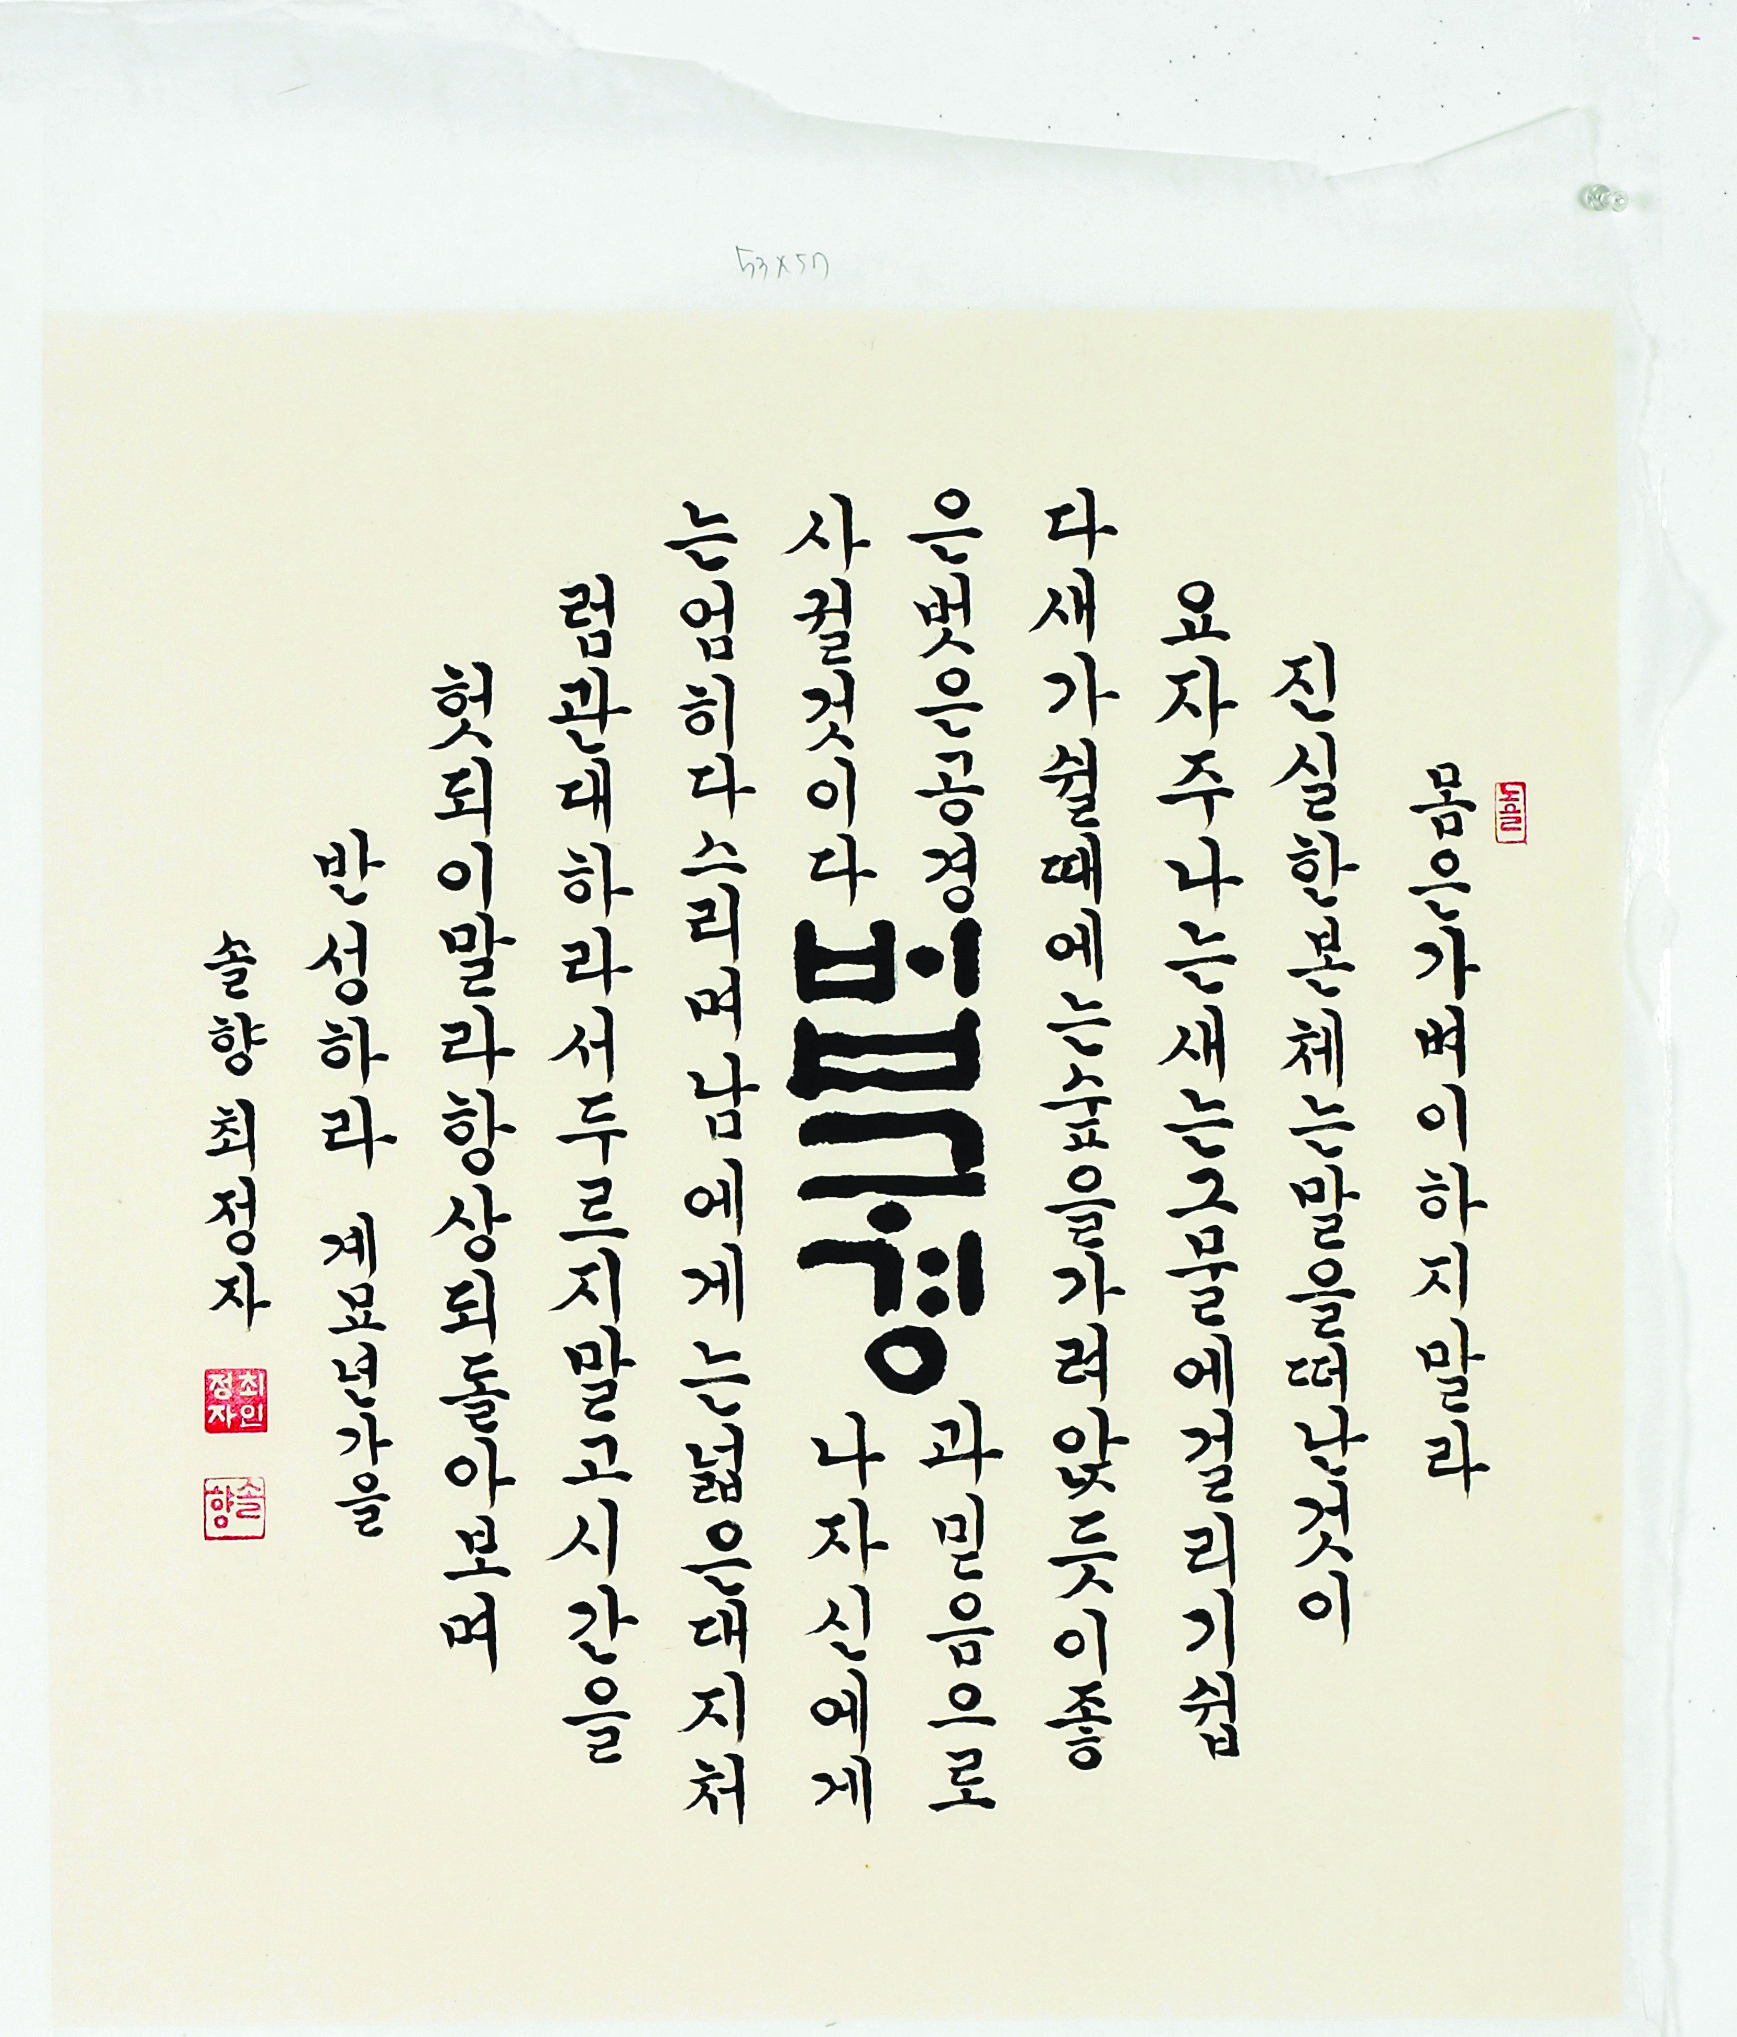 53x57
몸은가벼이하지말라
진실한본체는말을떠난것이
요자주나는새는그물에걸리기쉽
다새가쉴때에는숲을가려앉듯이좋
은벗은공경과믿음으로
사귈것이다나자신에게
법구경
는엄히다스리며남에게는넓은대지처
럼관대하라서두르지말고시간을
헛되이말라항상되돌아보며
반성하라 계묘년가을
솔향 최정자
최인정자
솔향